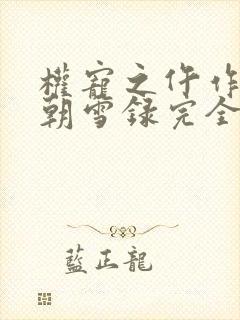 權寵之仵作
朝雪録完全
藍正龍